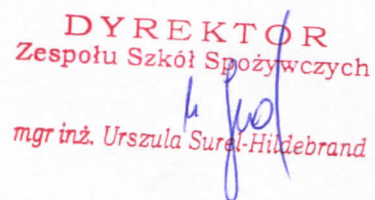 DYREKTOR
Zespołu Szkół Spożywczych
mgr inż. Urszula Surel-Hildebrand